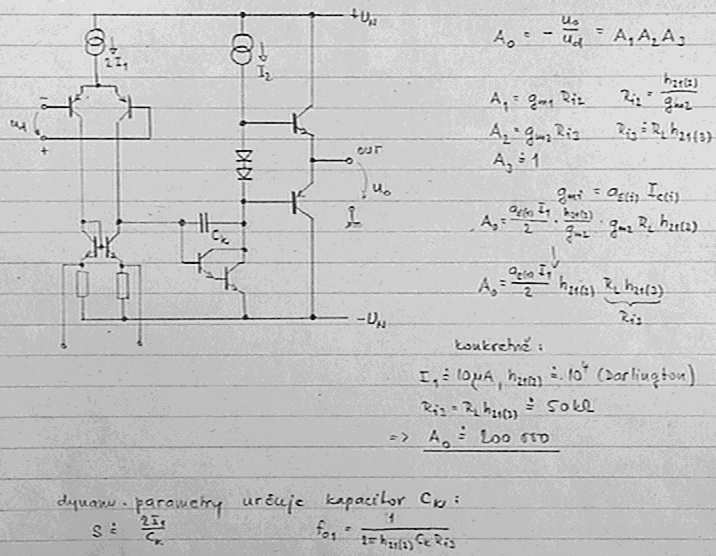 +U_N
2I₁
I₂
A₀ = - u₀/u_d = A₁ A₂ A₃
A₁ = g_m1 R_i2   R_i2 = h_21(2)/g_m2
A₂ = g_m2 R_i3   R_i3 ≐ R_L h_21(3)
A₃ ≐ 1
-
u_d
+
OUT
u₀
g_mi = a_E(i) I_C(i)
C_K
A₀ = a_E(1) I₁/2 · h_21(2)/g_m2 · g_m2 R_L h_21(3)
A₀ = a_E(1) I₁/2 h_21(2) R_L h_21(3)
R_i3
-U_N
konkretně:
I₁ ≐ 10μA, h_21(2) ≐ 10⁴ (Darlington)
R_i3 = R_L h_21(3) ≐ 50kΩ
=> A₀ ≐ 200 000
dynam. parametry určuje kapacitor C_K:
S ≐ 2I₁/C_K   f_01 = 1/2π h_21(2) C_K R_i3